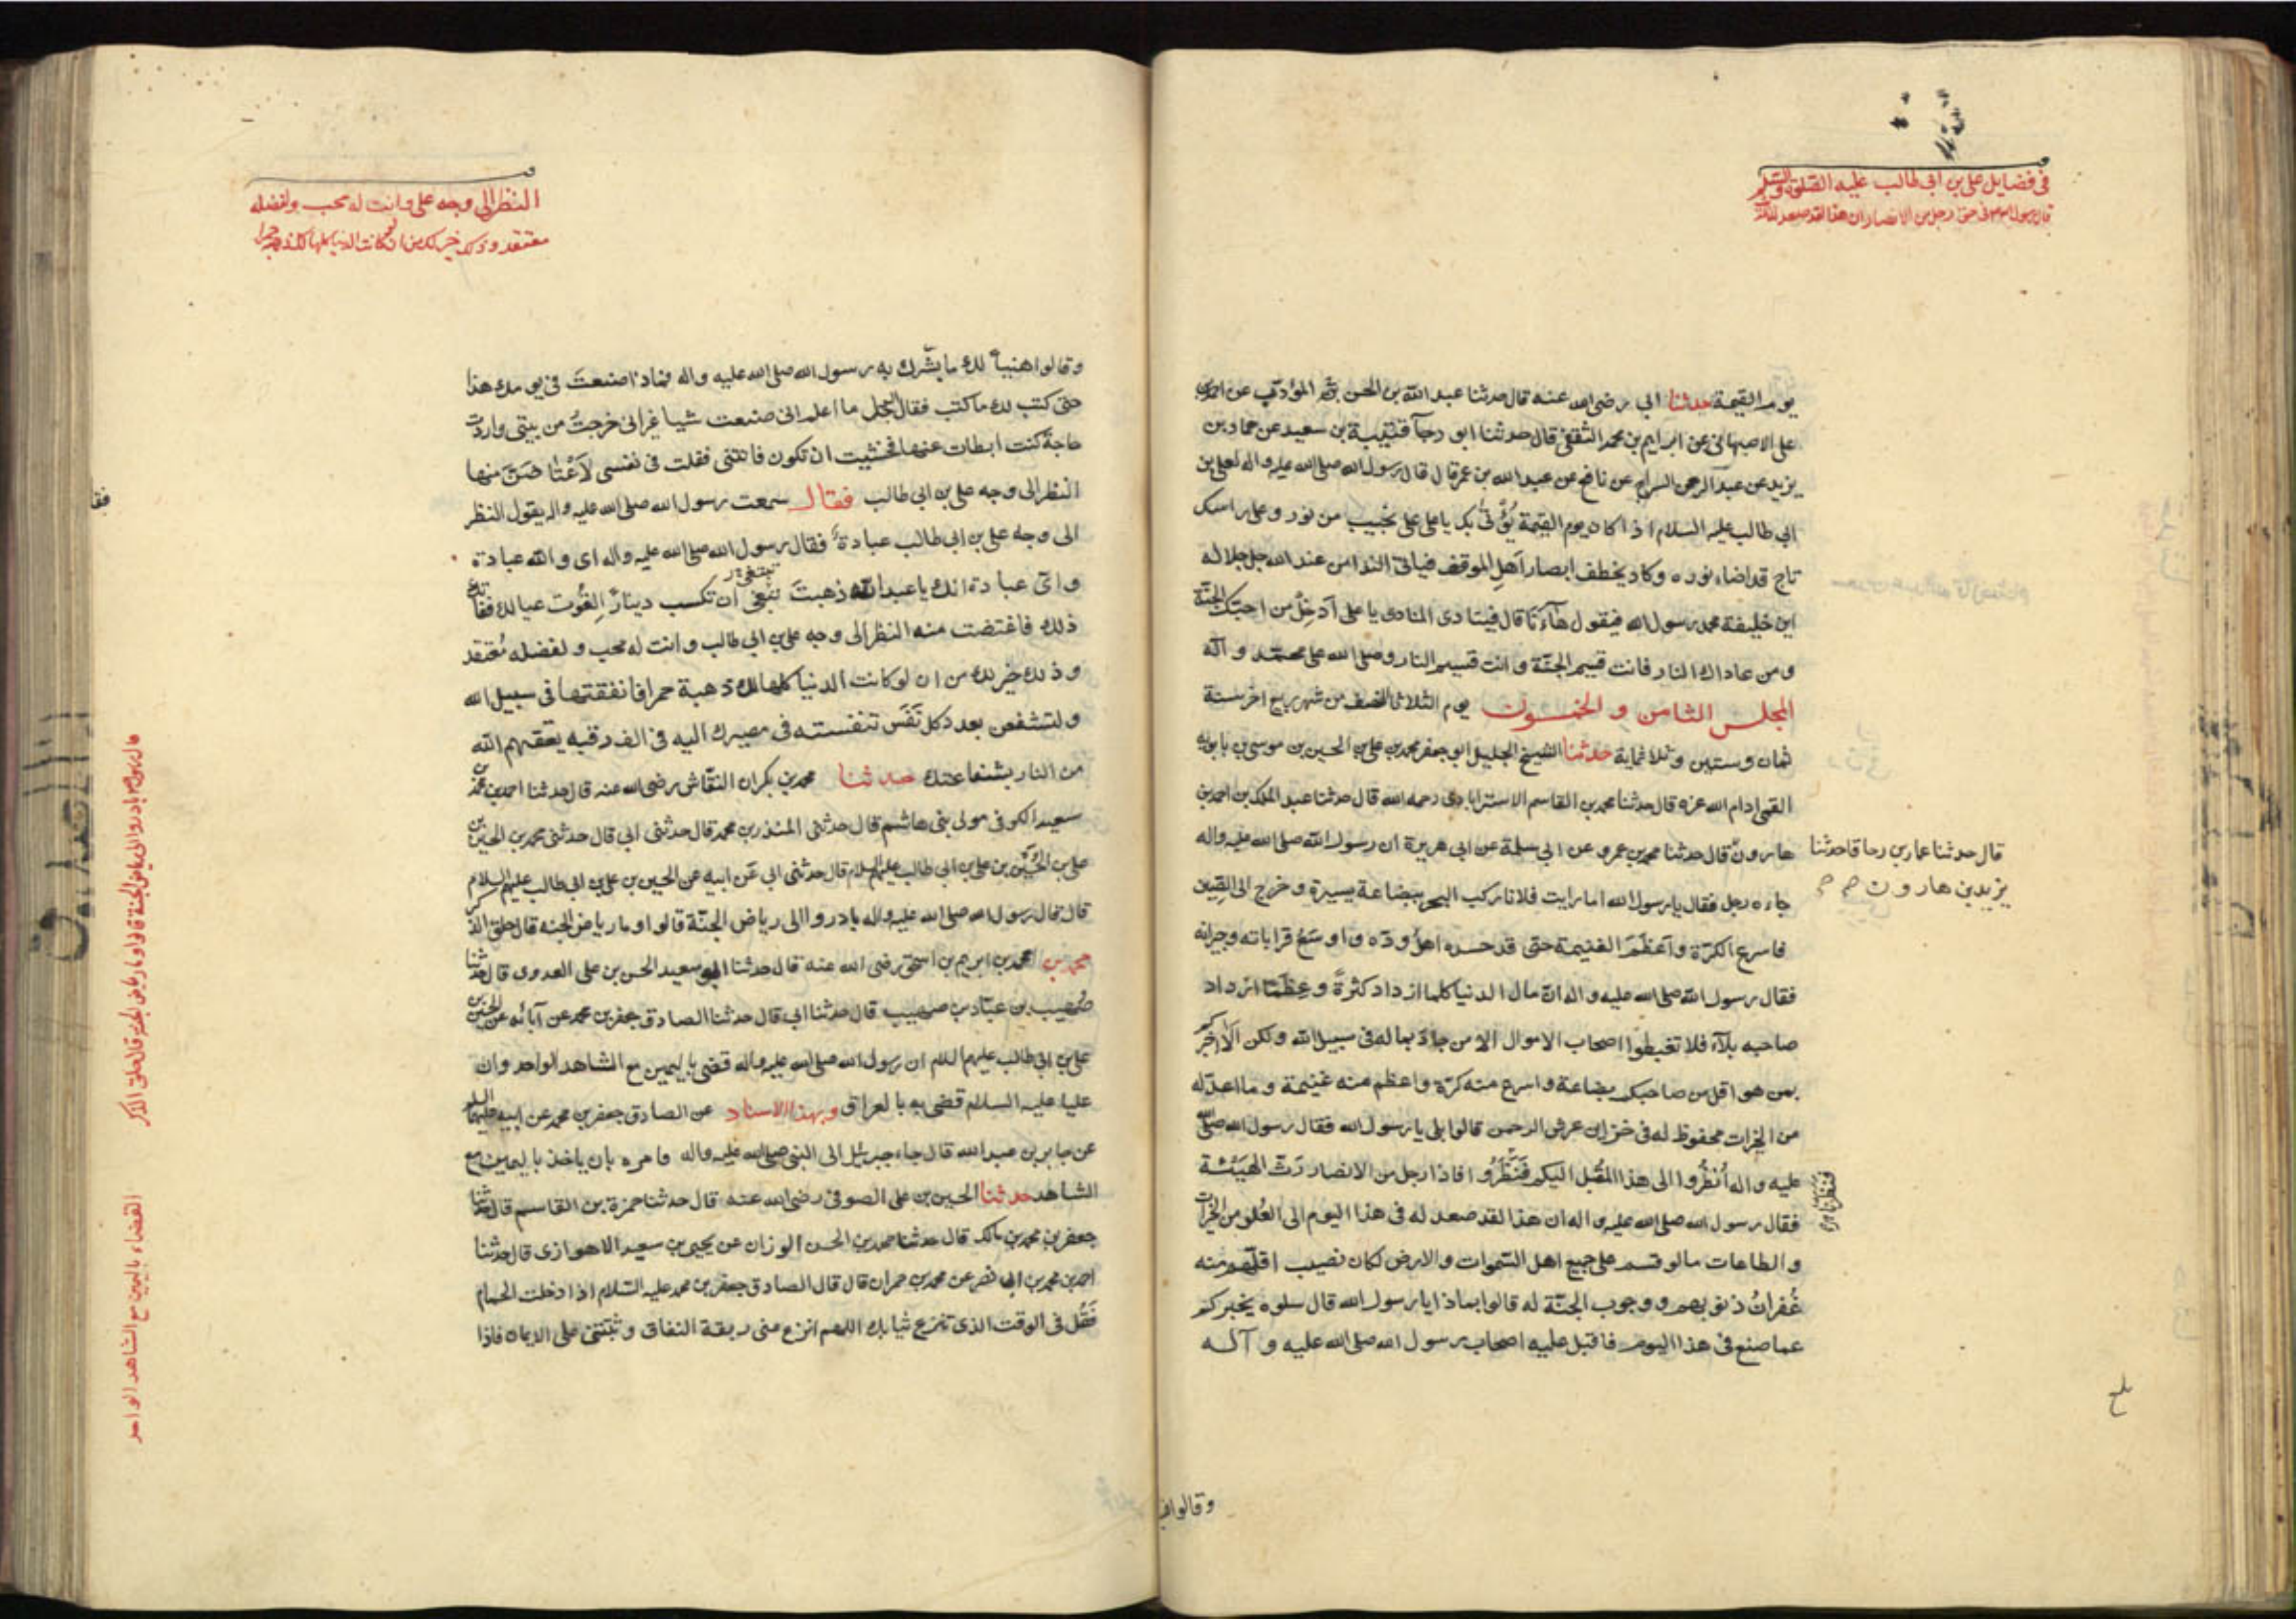 في فضايل علي بن ابي طالب عليه الصلوة والسلم
يوم القيمة حدثنا ابي رضى الله عنه قال حدثنا عبد الله بن الحسن المؤدب عن احمد بن
على الاصبهانى عن ابراهيم بن محمد الثقفى قال حدثنا ابو رجآ قتيبة بن سعيد عن حماد بن
يزيد عن عبد الرحمن السراج عن نافع عن عبد الله بن عمر قال قال رسول الله صلى الله عليه واله لعلى بن
ابي طالب عليه السلام اذا كان يوم القيمة يؤتى بك يا على على نجيب من نور وعلى راسك
تاج قد اضاء نوره وكاد يخطف ابصار اهل الموقف فياتى الندا من عند الله جل جلاله
اين خليفة محمد رسول الله فيقول هاءنا قال فينادى المنادى يا على ادخل من احبك الجنة
ومن عاداك النار فانت قسيم الجنة وانت قسيم النار وصلى الله على محمد وآله
المجلس الثامن و الخمسون يوم الثلاثا النصف من شهر ربيع اخر سنة
ثمان وستين وثلاثماية حدثنا الشيخ الجليل ابو جعفر محمد بن على بن الحسين بن موسى بن بابويه
القمى ادام الله عزه قال حدثنا محمد بن القاسم الاسترابادى رحمه الله قال حدثنا عبد الملك بن احمد بن
هارون قال حدثنا محمد بن عمرو عن ابى سلمة عن ابى هريرة ان رسول الله صلى الله عليه واله
قال حدثنا عمار بن رجا قا حدثنا
يزيد بن هارون
جاءه رجل فقال يا رسول الله اما رايت فلانا ركب البحر ببضاعة يسيرة وخرج الى الصين
فاسرع الكرة واعظم الغنيمة حتى قد حسده اهل وده واوسع قراباته وجيرانه
فقال رسول الله صلى الله عليه واله ان مال الدنيا كلما ازداد كثرة وعظما ازداد
صاحبه بلآء فلا تغبطوا اصحاب الاموال الا من جاد بماله فى سبيل الله ولكن الا اخبركم
بمن هو اقل من صاحبكم بضاعة واسرع منه كرة واعظم منه غنيمة وما اعد له
من الخيرات محفوظ له فى خزاين عرش الرحمن قالوا بلى يا رسول الله فقال رسول الله صلى الله
عليه واله انظروا الى هذا المقبل اليكم فنظروا فاذا رجل من الانصار رث الهيئة
فقال رسول الله صلى الله عليه واله ان هذا لقد صعد له فى هذا اليوم الى العلو من الخيرات
والطاعات ما لو قسم على جميع اهل السموات والارض لكان نصيب اقلهم منه
غفران ذنوبهم ووجوب الجنة له قالوا بماذا يا رسول الله قال سلوه يخبركم
عما صنع فى هذا اليوم فاقبل عليه اصحاب رسول الله صلى الله عليه و آلـه
وقالوا
النظر الى وجه على وانت له محب ولفضله
وقالوا هنيئا لك ما بشرك به رسول الله صلى الله عليه واله فماذا صنعت فى يومك هذا
حتى كتب لك ما كتب فقال الرجل ما اعلم انى صنعت شيا غير انى خرجت من بيتى واردت
حاجة كنت ابطات عنها فخشيت ان تكون فاتتنى فقلت فى نفسى لاعتاضن منها
النظر الى وجه على بن ابى طالب فقال سمعت رسول الله صلى الله عليه واله يقول النظر
الى وجه على بن ابى طالب عبادة فقال رسول الله صلى الله عليه واله اى والله عبادة
واى عبادة انك يا عبد الله ذهبت تبتغى ان تكسب دينارا لقوت عيالك ففاتك
ذلك فاعتضت منه النظر الى وجه على بن ابى طالب وانت له محب ولفضله معتقد
وذلك خير لك من ان لو كانت الدنيا كلها لك ذهبة حمرا فانفقتها فى سبيل الله
ولتشفعن بعدد كل نفس تنفسته فى مصيرك اليه فى الف رقبه يعتقهم الله
من النار بشفاعتك حدثنا محمد بن بكران النقاش رضى الله عنه قال حدثنا احمد بن محمد بن
سعيد الكوفى مولى بنى هاشم قال حدثنى المنذر بن محمد قال حدثنى ابى قال حدثنى محمد بن الحسن بن
على بن الحسين بن على بن ابى طالب عليهم السلام قال حدثنى ابى عن ابيه عن الحسين بن على بن ابى طالب عليهم السلام
قال قال رسول الله صلى الله عليه واله بادروا الى رياض الجنة قالوا وما رياض الجنه قال حلق الذكر
محمد بن ابرهيم بن اسحق رضى الله عنه قال حدثنا ابو سعيد الحسن بن على العدوى قال حدثنا
صهيب بن عباد بن صهيب قال حدثنا ابى قال حدثنا الصادق جعفر بن محمد عن آبائه عن الحسين بن
على بن ابى طالب عليهم السلام ان رسول الله صلى الله عليه واله قضى باليمين مع الشاهد الواحد وان
عليا عليه السلام قضى به بالعراق وبهذا الاسناد عن الصادق جعفر بن محمد عن ابيه عليهما السلام
عن جابر بن عبد الله قال جاء جبرئيل الى النبى صلى الله عليه واله وامره بان ياخذ باليمين مع
الشاهد حدثنا الحسين بن على الصوفى رضى الله عنه قال حدثنا حمزة بن القاسم قال حدثنا
جعفر بن محمد بن مالك قال حدثنا محمد بن الحسن الوزان عن يحيى بن سعيد الاهوازى قال حدثنا
احمد بن محمد بن ابى نصر عن محمد بن حمران قال قال الصادق جعفر بن محمد عليه السلام اذا دخلت الحمام
فقل فى الوقت الذى تنزع ثيابك اللهم انزع عنى ربقة النفاق وثبتنى على الايمان فاذا
القضاء باليمين مع الشاهد الواحد